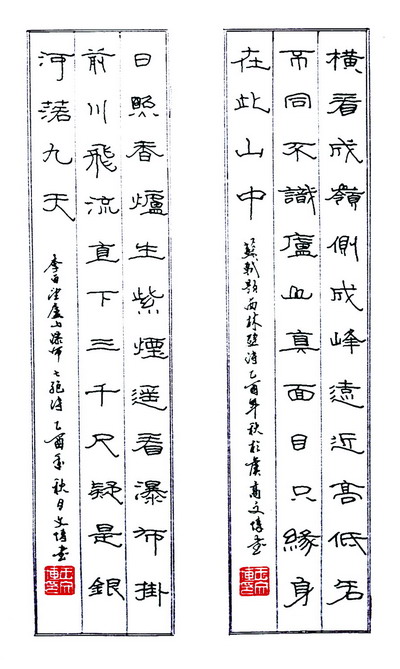 橫看成嶺側成峰遠近高低各
不同不識廬山真面目只緣身
在此山中
蘇軾題西林壁詩乙酉年秋於虞高文博書
日照香爐生紫煙遙看瀑布掛
前川飛流直下三千尺疑是銀
河落九天
李白望廬山瀑布七絕詩乙酉年秋日文博書